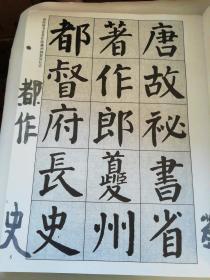 唐故祕書省
著作郎夔州
都督府長史
都作
史